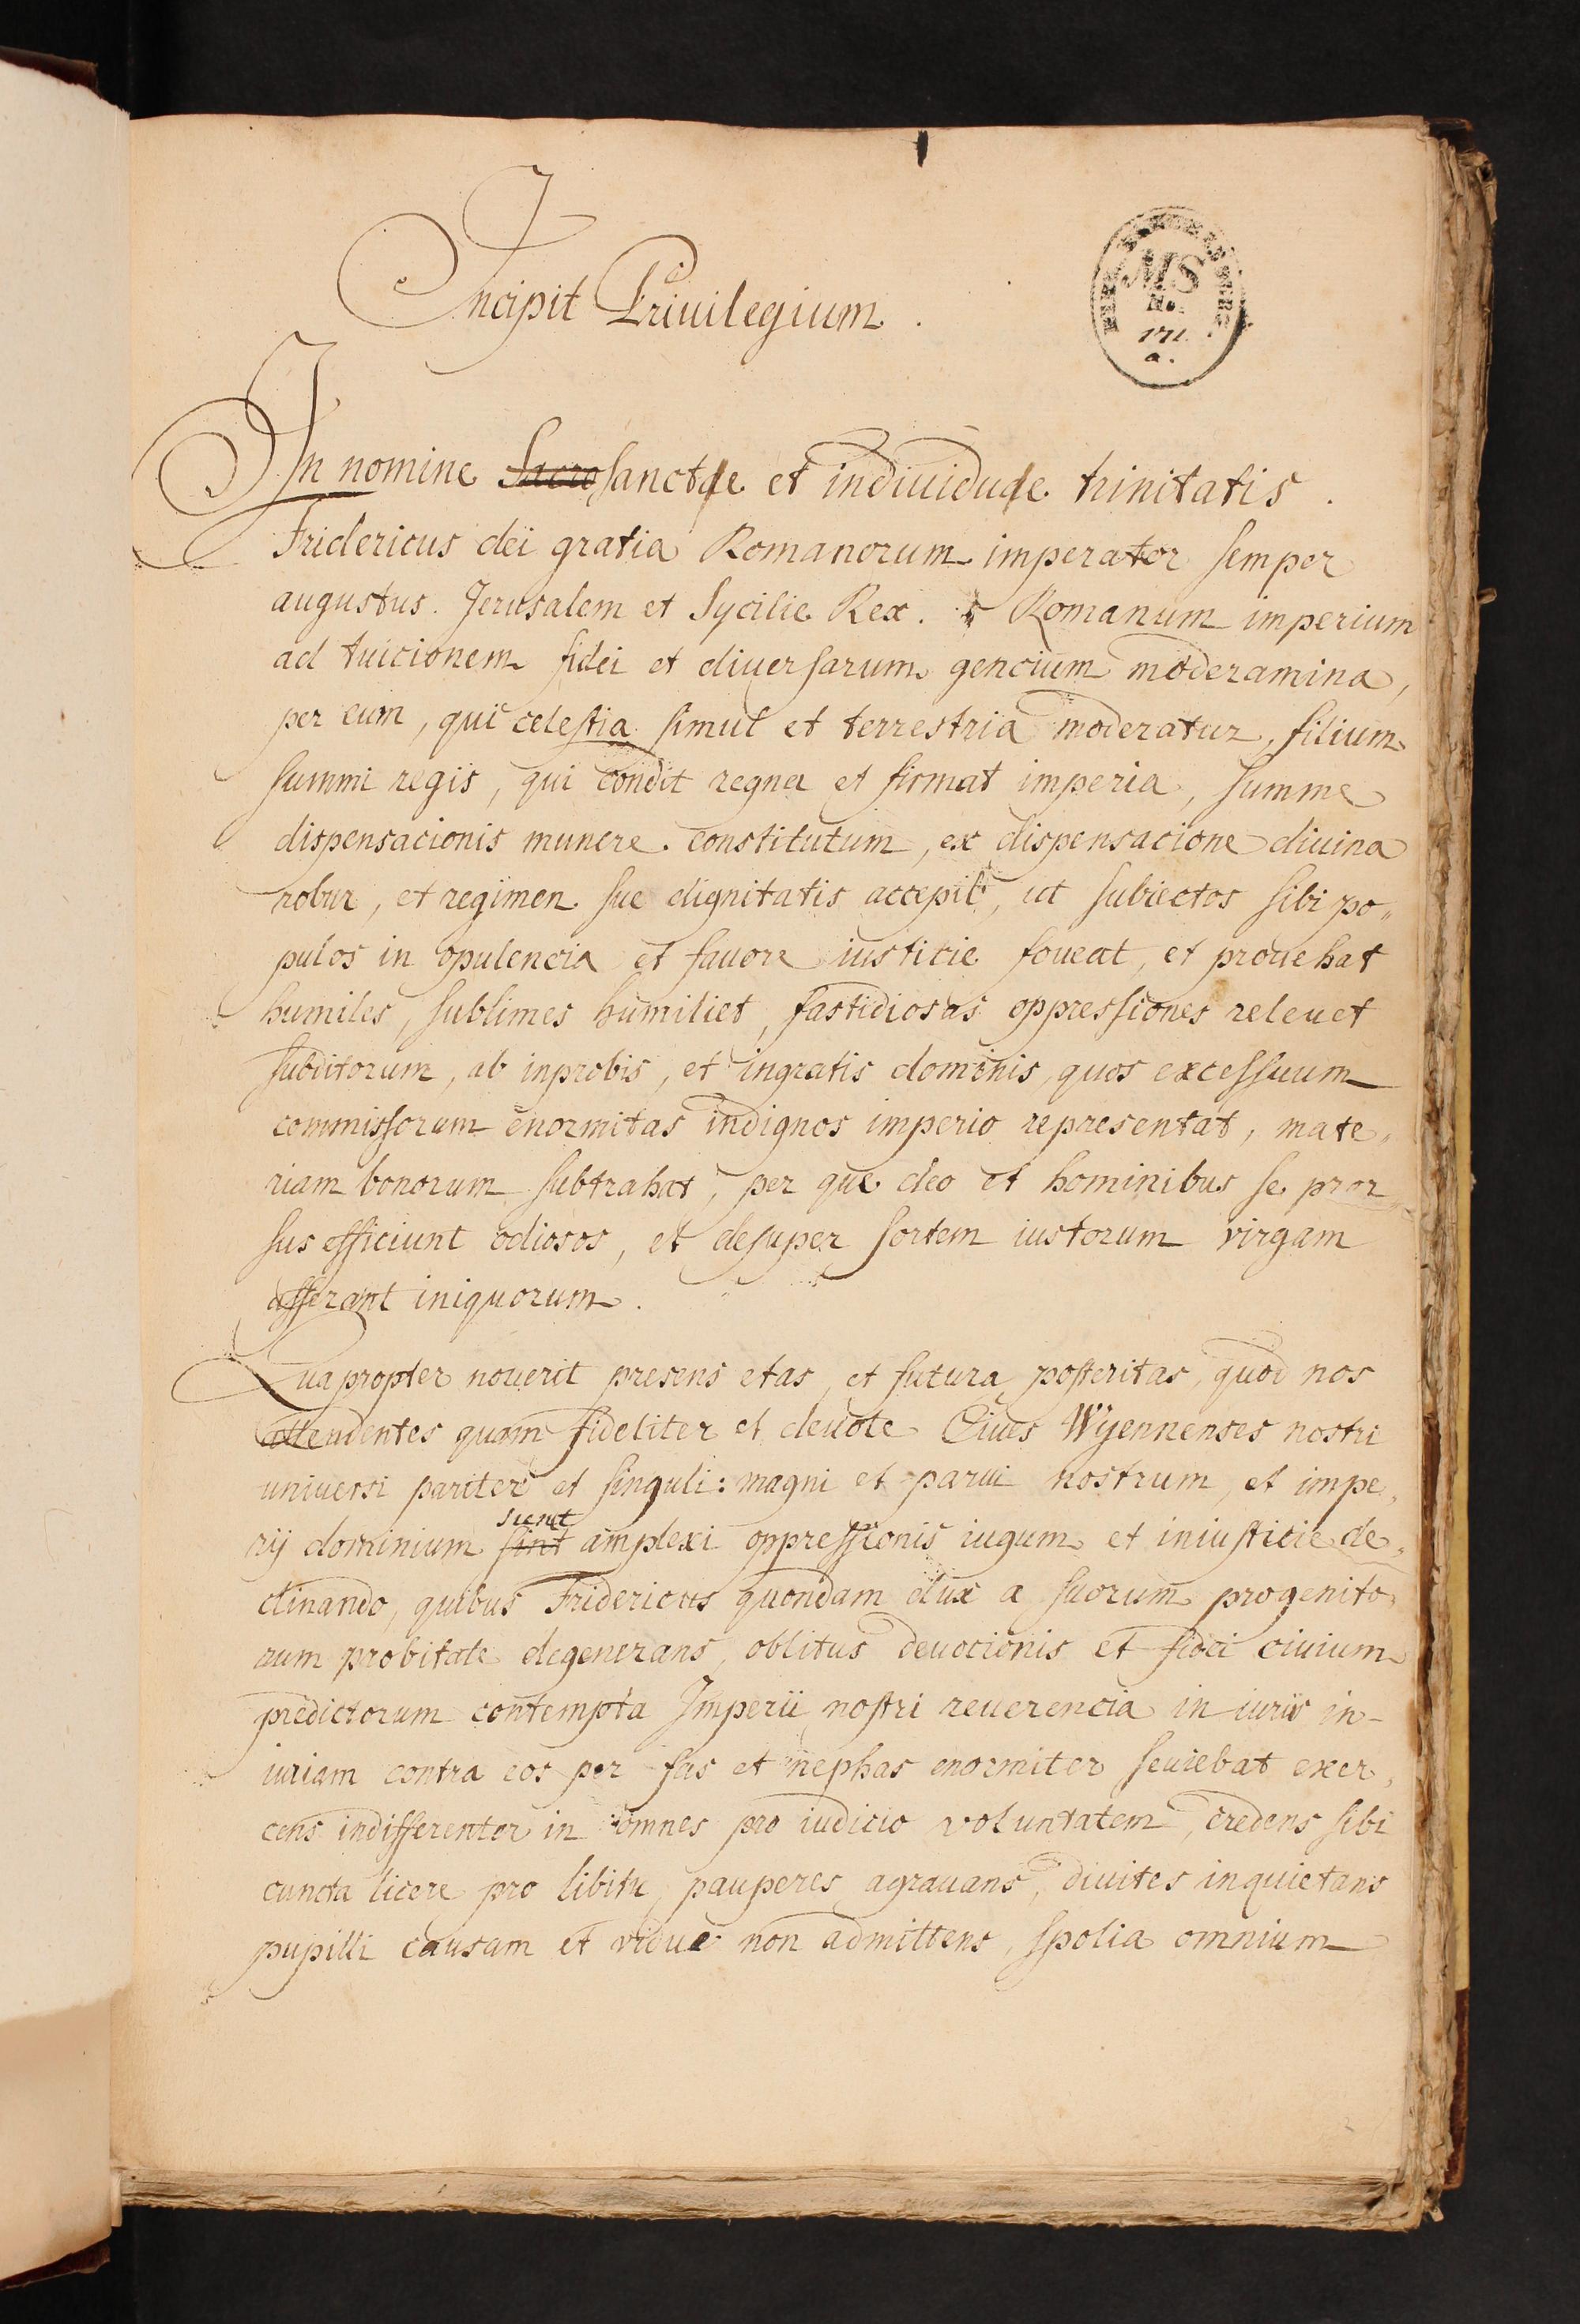 Incipit Priuilegium.
MS
No.
171.
a.
In nomine Sacrosancte et indiuidue trinitatis.
Fridericus dei gratia Romanorum imperator semper
augustus. Jerusalem et Sycilie Rex. Romanum imperium
ad tuicionem fidei et diuersarum gencium moderamina,
per eum, qui celestia simul et terrestria moderatur, filium
summi regis, qui condit regna et firmat imperia, summe
dispensacionis munere constitutum, ex dispensacione diuina
robur, et regimen sue dignitatis accepit, ut subiectos sibi po„
pulos in opulencia et fauore iusticie foueat, et prouehat
humiles, sublimes humiliet, fastidiosas oppressiones releuet
subditorum, ab inprobis, et ingratis dominis, quos excessuum
commissorum enormitas indignos imperio representat, mate„
riam bonorum subtrahat, per que deo et hominibus se pror„
sus efficiunt odiosos, et desuper sortem iustorum virgam
afferant iniquorum.
Quapropter nouerit presens etas, et futura posteritas, quod nos
attendentes quam fideliter et deuote Ciues Wyennenses nostri
uniuersi pariter et singuli: magni et parui nostrum, et impe„
sicut
rij dominium sint amplexi oppressionis iugum et iniusticie de„
clinando, quibus Fridericus quondam dux a suorum progenito„
rum probitate degenerans, oblitus deuocionis et fidei ciuium
predictorum contempta Imperii nostri reuerencia in iuris in-
iuriam contra eos per fas et nephas enormiter seuiebat exer„
cens indifferenter in omnes pro iudicio voluntatem, credens sibi
cuncta licere pro libitu, pauperes agrauans, diuites inquietans
pupilli causam et vidue non admittens, spolia omnium